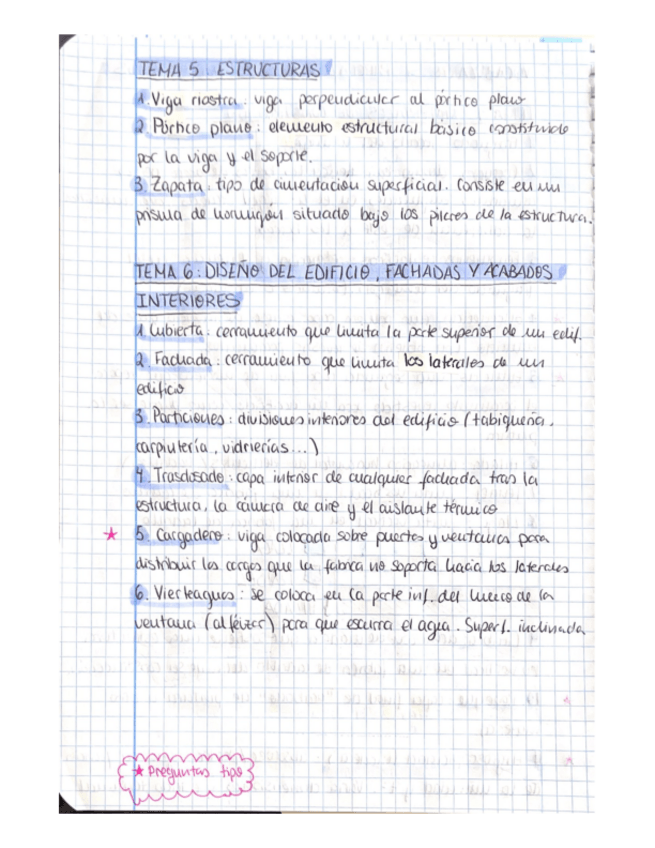 TEMA 5. ESTRUCTURAS
1. Viga riostra: viga perpendicular al pórtico plano
2. Pórtico plano: elemento estructural básico constituido
por la viga y el soporte.
3. Zapata: tipo de cimentación superficial. Consiste en un
prisma de hormigón situado bajo los pilares de la estructura.
TEMA 6: DISEÑO DEL EDIFICIO, FACHADAS Y ACABADOS
INTERIORES
1. Cubierta: cerramiento que limita la parte superior de un edif.
2. Fachada: cerramiento que limita los laterales de un
edificio
3. Particiones: divisiones interiores del edificio (tabiquería,
carpintería, vidrierías...)
4. Trasdosado: capa interior de cualquier fachada tras la
estructura, la cámara de aire y el aislante térmico
★ 5. Cargadero: viga colocada sobre puertas y ventanas para
distribuir las cargas que la fabrica no soporta hacia los laterales
6. Vierteaguas: se coloca en la parte inf. del hueco de la
ventana (alféizar) para que escurra el agua. Superf. inclinada
★ Preguntas tipo